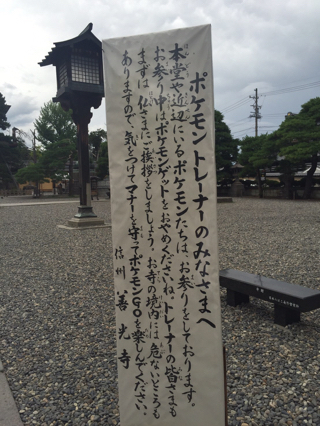 ポケモントレーナーのみなさまへ
本堂や近辺にいるポケモンたちは、お参りをしております。
お参り中はポケモンゲットをおやめくださいね。トレーナーの皆さまも
まずは、仏さまにご挨拶をしましょう。お寺の境内には危ないところも
ありますので、気をつけてマナーを守ってポケモンGOを楽しんでください。
信州 善光寺